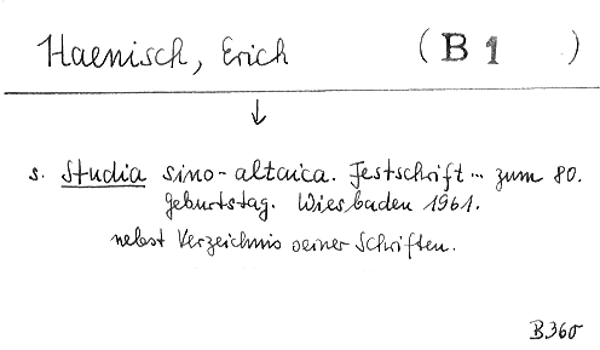 Haenisch, Erich ( B 1 )
↓
s. Studia sino-altaica. Festschrift ... zum 80.
Geburtstag. Wiesbaden 1961.
nebst Verzeichnis seiner Schriften.
B360